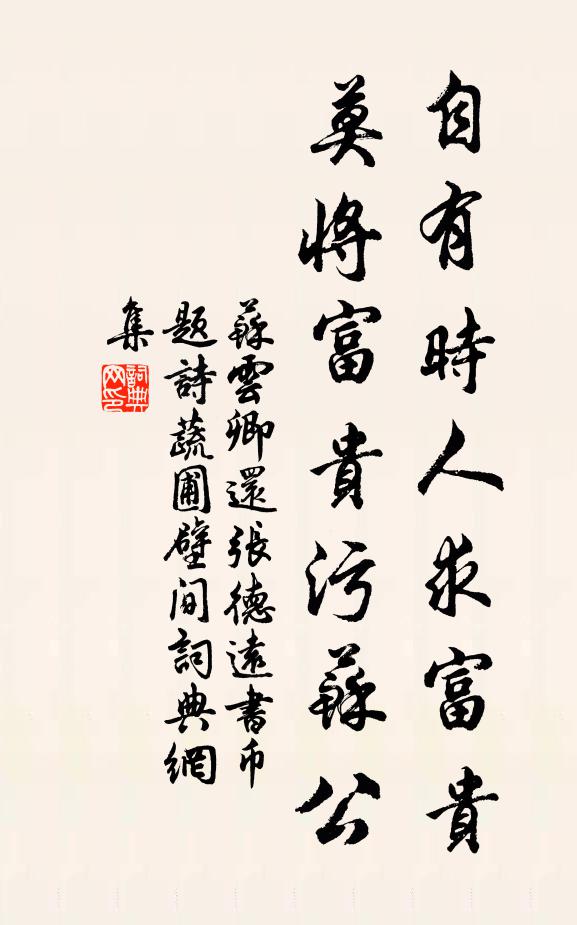 自有時人求富貴
莫將富貴污蘇公
蘇雲卿還張德遠書币
題詩蔬圃壁间詞典網
集
詞典
网印